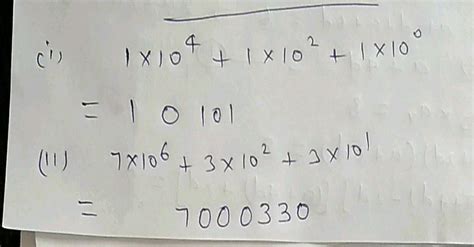 (i) 1×10⁴ + 1×10² + 1×10⁰
= 1 0 101
(11) 7×10⁶ + 3×10² + 3×10¹
= 7000330